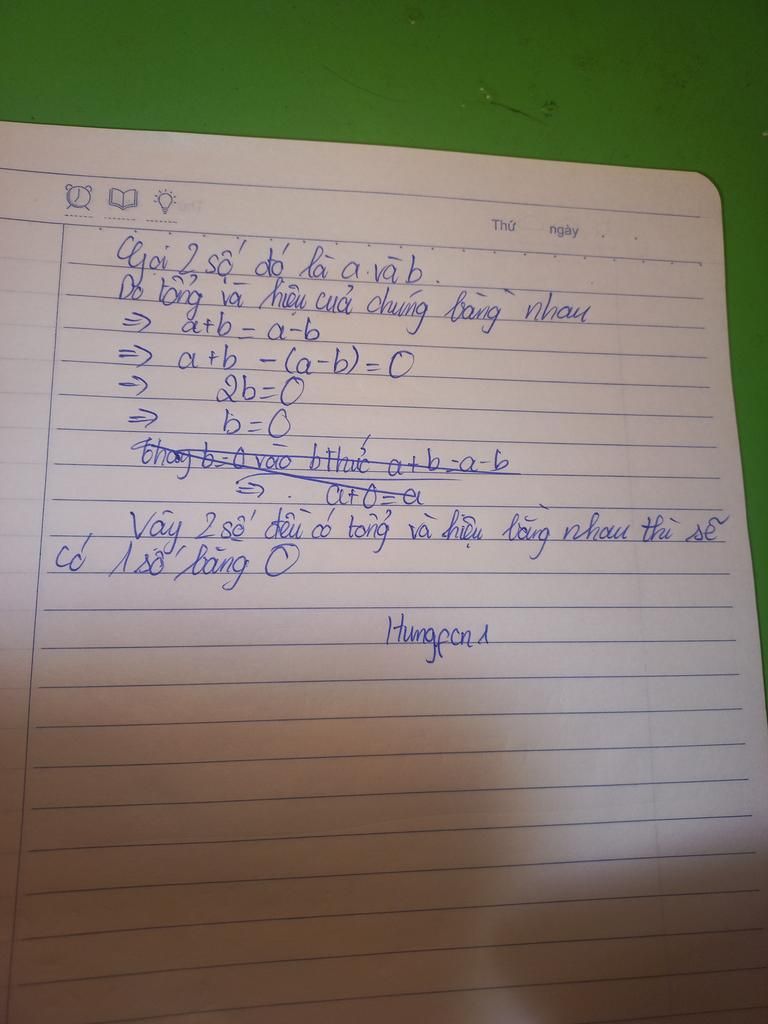 Thứ ngày . .
Gọi 2 số đó là a và b.
Do tổng và hiệu cuả chúng bằng nhau
=> a+b = a-b
=> a+b -(a-b)=0
=> 2b=0
=> b=0
thay b=0 vào bthức a+b=a-b
=> . a+0=a
Vậy 2 số đều có tổng và hiệu bằng nhau thì sẽ
có 1 số bằng 0
Hungfcn1